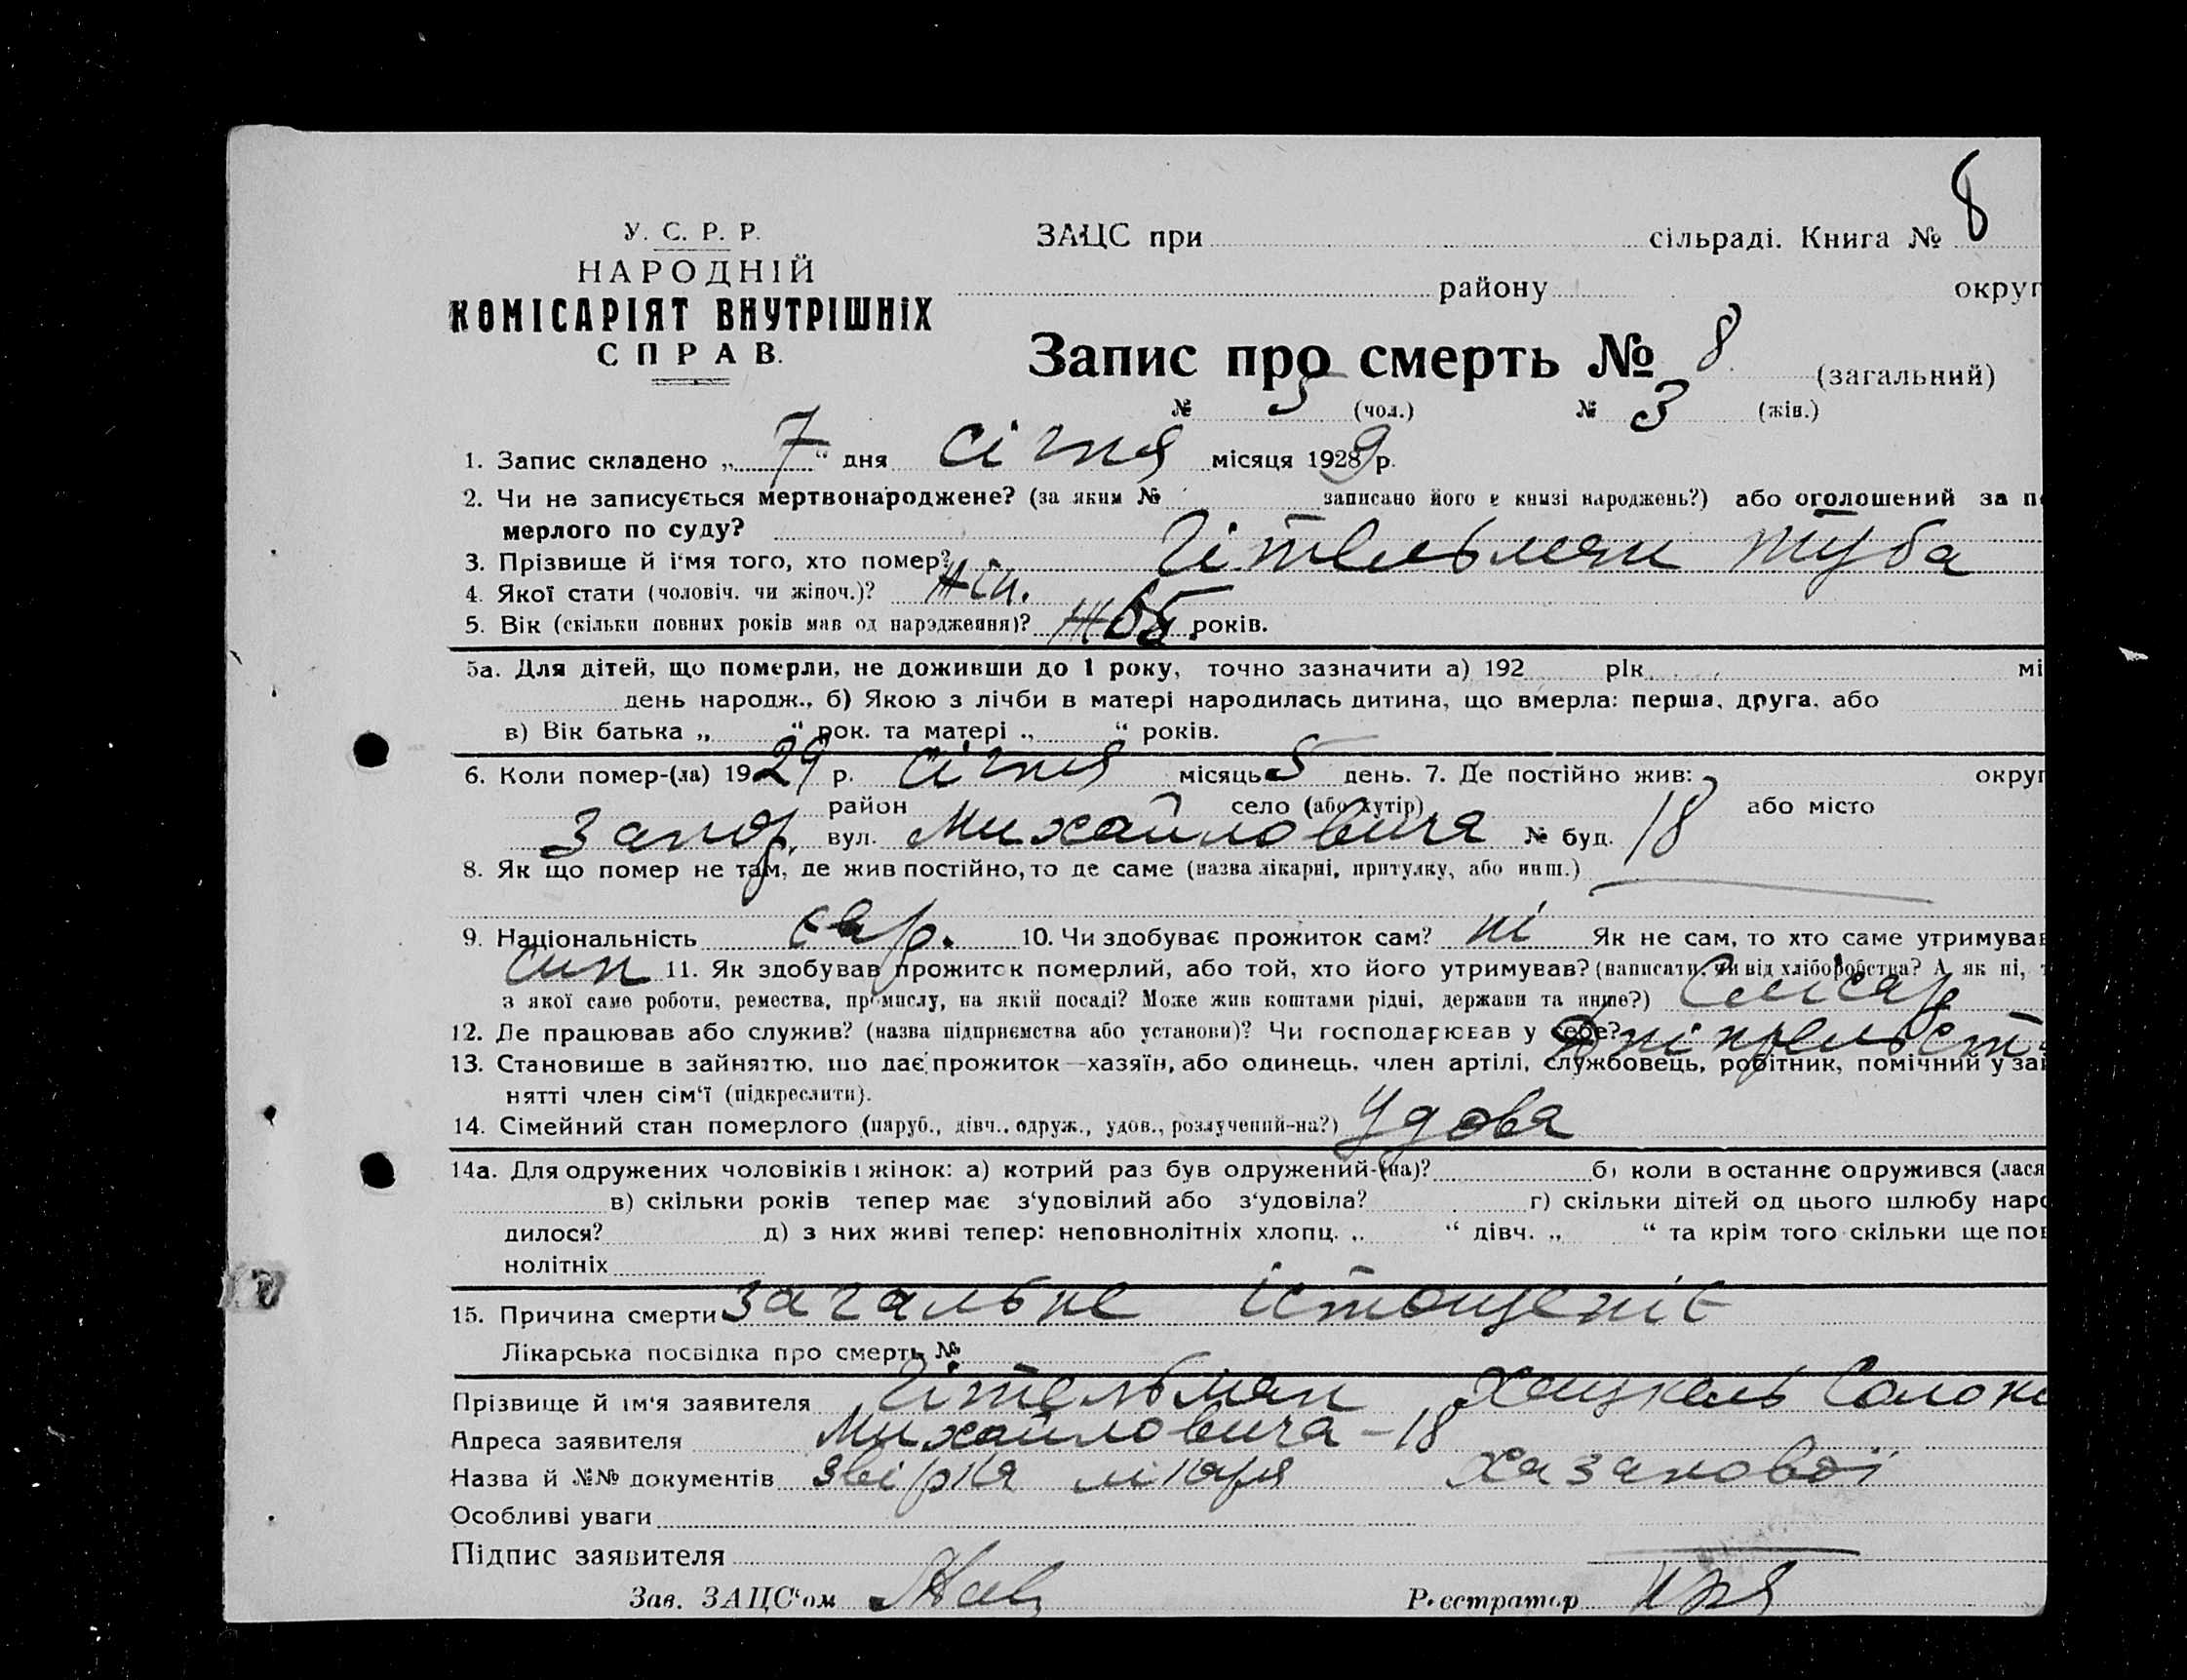 8
У. С. Р. Р.
НАРОДНІЙ
КОМІСАРІЯТ ВНУТРІШНІХ
СПРАВ.
ЗАЦС при сільраді. Книга №
району округ
Запис про смерть № 8 (загальний)
№ 5 (чол.) № 3 (жін.)
1. Запис складено „ 7 “ дня січня місяця 1929 р.
2. Чи не записується мертвонароджене? (за яким № записано його в книзі народжень?) або оголошений за по
мерлого по суду?
3. Прізвище й ім'я того, хто помер? Гітельман Туба
4. Якої стати (чоловіч. чи жіноч.)? жін.
5. Вік (скільки повних років мав од народження)? років.
5а. Для дітей, що померли, не доживши до 1 року, точно зазначити а) 192 рік мі
день народж., б) Якою з лічби в матері народилась дитина, що вмерла: перша, друга, або
в) Вік батька „ “ рок. та матері „ “ років.
6. Коли помер-(ла) 1929 р. січня місяць 5 день. 7. Де постійно жив: округ
район село (або хутір) або місто
Запор. вул. Михайловича № буд. 18
8. Як що помер не там, де жив постійно, то де саме (назва лікарні, притулку, або инш.)
9. Національність євр. 10. Чи здобуває прожиток сам? ні Як не сам, то хто саме утримував
син 11. Як здобував прожиток померлий, або той, хто його утримував? (написати, чи від хліборобства? А як ні, т
з якої саме роботи, ремества, промислу, на якій посаді? Може жив коштами рідні, держави та инше?) Слісар
12. Де працював або служив? (назва підприємства або установи)? Чи господарював у себе?
13. Становише в зайняттю, що дає прожиток—хазяїн, або одинець, член артілі, службовець, робітник, помічний у зай
нятті член сім'ї (підкреслити).
14. Сімейний стан померлого (паруб., дівч., одруж., удов., розлучений-на?) Удова
14а. Для одружених чоловіків і жінок: а) котрий раз був одружений-(на)? б) коли востаннє одружився (лася
в) скільки років тепер має з'удовілий або з'удовіла? г) скільки дітей од цього шлюбу наро
дилося? д) з них живі тепер: неповнолітніх хлопц. „ “ дівч. „ “ та крім того скільки ще пов
нолітніх
15. Причина смерти загальне істощеніє
Лікарська посвідка про смерть №
Прізвище й ім'я заявителя Гітельман Хацкель Соломо
Адреса заявителя Михайловича - 18
Назва й №№ документів звірка лікаря Хазанової
Особливі уваги
Підпис заявителя
Зав. ЗАЦС'ом
Реєстратор